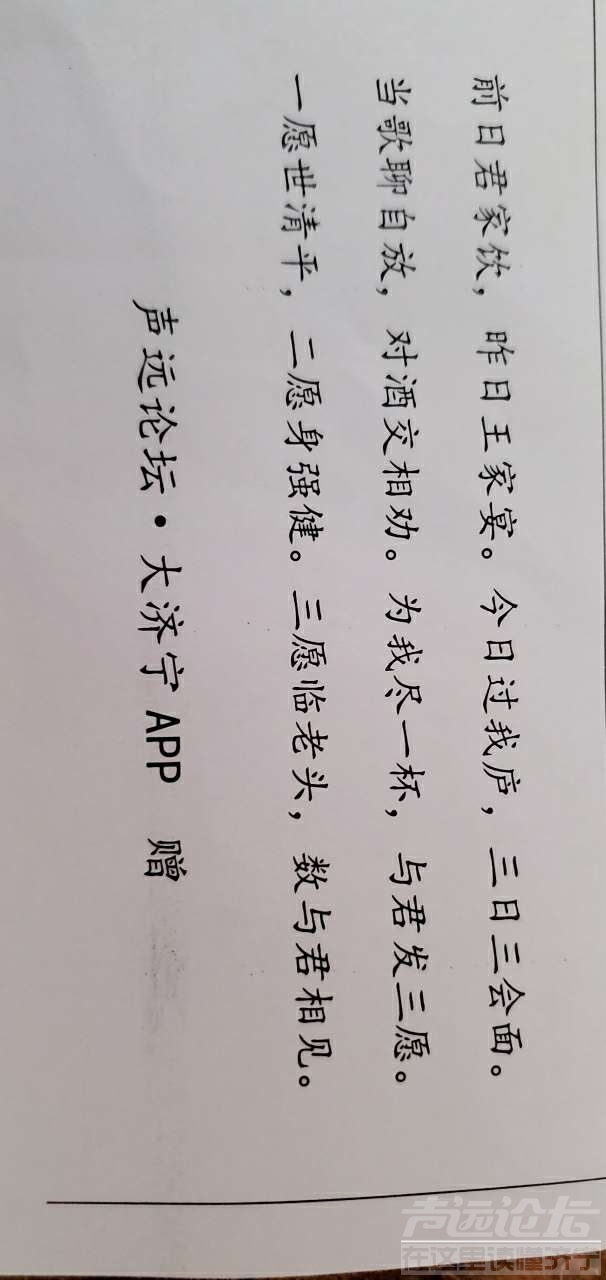 前日君家饮，昨日王家宴。今日过我庐，三日三会面。
当歌聊自放，对酒交相劝。为我尽一杯，与君发三愿。
一愿世清平，二愿身强健。三愿临老头，数与君相见。
声远论坛·大济宁APP 赠
声远论坛
在这里读懂济宁